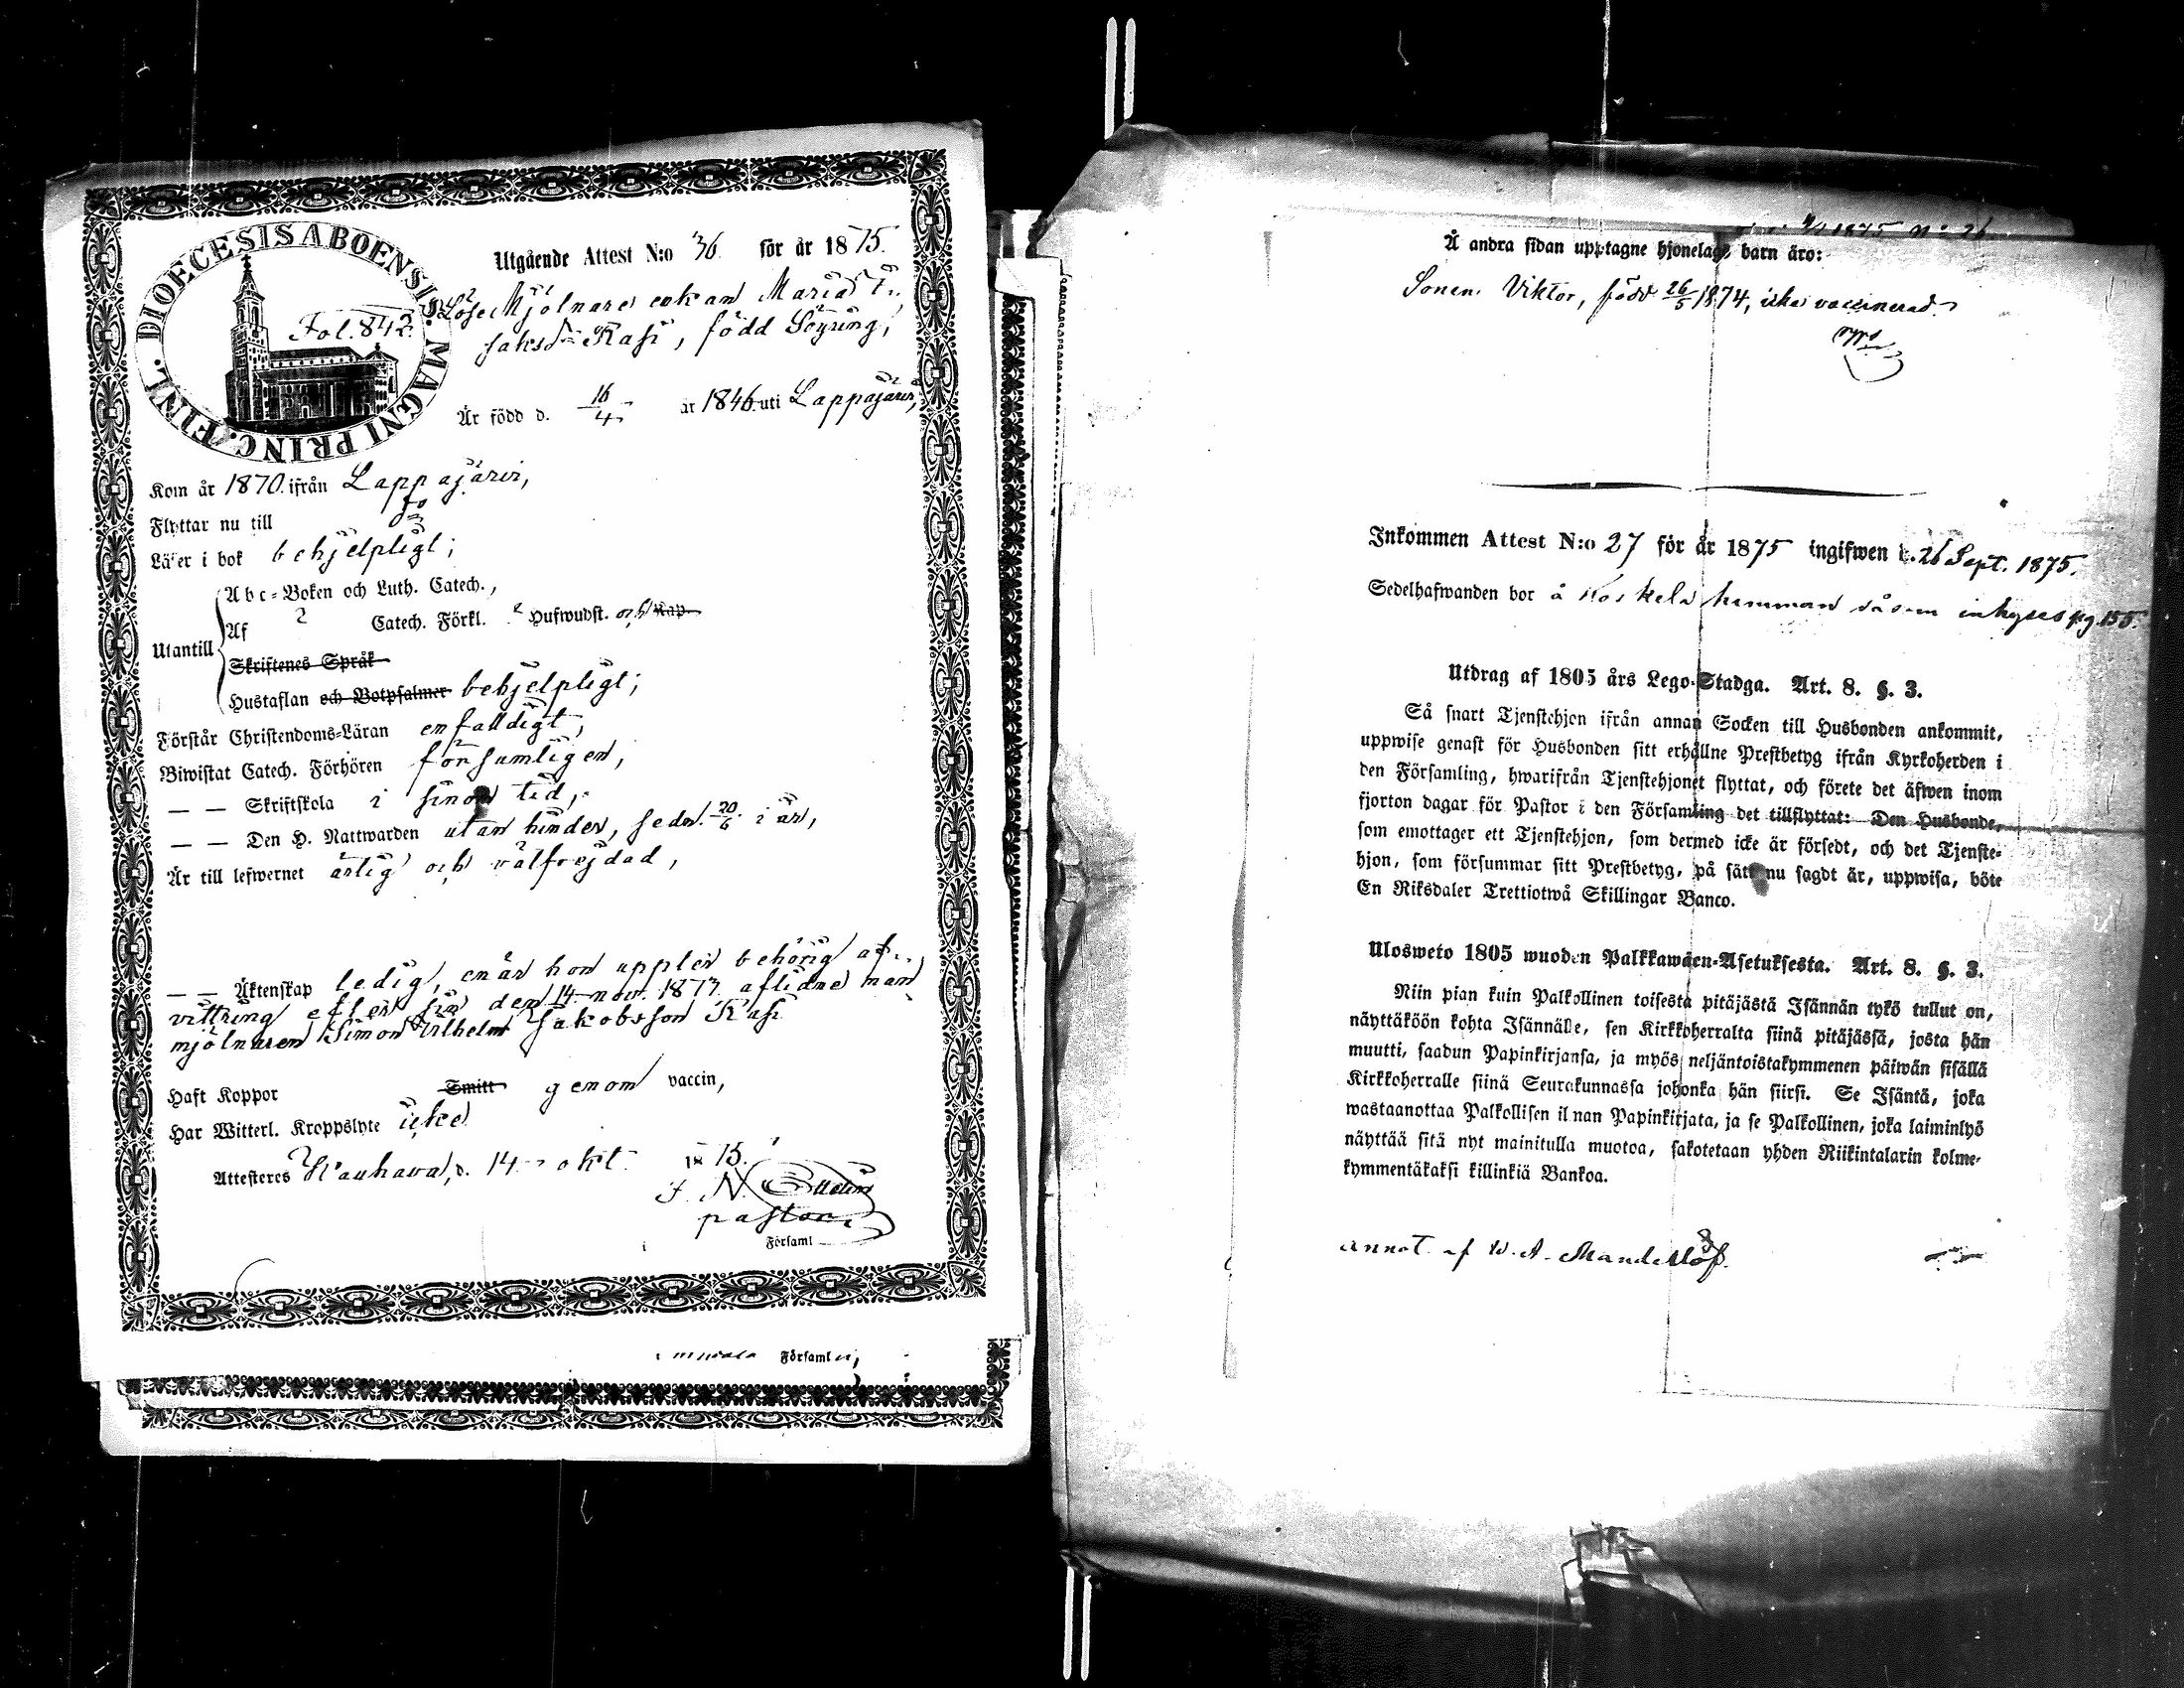 DIOECESIS ABOENSIS. MAGNI PRINC. FINL.
Fol. 842.
Utgående Attest N:o 36 för år 1875.
Löse Mjölnare enkan Maria
Jaksdr Rasi, född Söyring,
Är född d. 16/4 år 1846 uti Lappajärvi,
Kom år 1870. ifrån Lappajärvi,
Flyttar nu till do
Läser i bok behjelpligt;
Utantill
Abc-Boken och Luth. Catech.,
Af 2 Catech. Förkl. 2 Hufwudst. och Kap.
Skriftenes Språk
Hustaflan och Botpsalmer behjelpligt;
Förstår Christendoms-Läran enfaldigt,
Biwistat Catech. Förhören försumligen,
— — Skriftskola i sinom tid,
— — Den H. Nattwarden utan hinder, sedn. 20/6 i år,
Är till lefwernet ärlig och välfrejdad,
— — Äktenskap ledig, enär hon upplef behörig af-
vittring efter sin den 14 nov. 1873 aflidne man
mjölnaren Simon Vilhelm Jakobsson Rasi
Haft Koppor Smitt genom vaccin,
Har Witterl. Kroppslyte icke
Attesteres Kauhava, d. 14 okt. 1875.
pastor.
Församl
Församl
1875 No 26
Å andra sidan upptagne hjonelags barn äro:
Sonen Viktor, född 26/5 1874, icke vaccinerad.
Inkommen Attest N:o 27 för år 1875 ingifwen d. 26 Sept. 1875.
Sedelhafwanden bor å Koskela hemman såsom inhyses pg. 155.
Utdrag af 1805 års Lego-Stadga. Art. 8. §. 3.
Så snart Tjenstehjon ifrån annan Socken till Husbonden ankommit,
uppwise genast för Husbonden sitt erhållne Prestbetyg ifrån Kyrkoherden i
den Församling, hwarifrån Tjenstehjonet flyttat, och förete det äfwen inom
fjorton dagar för Pastor i den Församling det tillflyttat: Den Husbonde,
som emottager ett Tjenstehjon, som dermed icke är försedt, och det Tjenste-
hjon, som försummar sitt Prestbetyg, på sätt nu sagdt är, uppwisa, böte
En Riksdaler Trettiotwå Skillingar Banco.
Ulosweto 1805 wuoden Palkkawäen-Asetuksesta. Art. 8. §. 3.
Niin pian kuin Palkollinen toisesta pitäjästä Isännän tykö tullut on,
näyttäköön kohta Isännälle, sen Kirkkoherralta siinä pitäjässä, josta hän
muutti, saadun Papinkirjansa, ja myös neljäntoistakymmenen päiwän sisällä
Kirkkoherralle siinä Seurakunnassa johonka hän siirsi. Se Isäntä, joka
wastaanottaa Palkollisen ilman Papinkirjata, ja se Palkollinen, joka laiminlyö
näyttää sitä nyt mainitulla muotoa, sakotetaan yhden Riikintalarin kolme-
kymmentäkaksi killinkiä Bankoa.
annot. af W. A. Mandellöf.